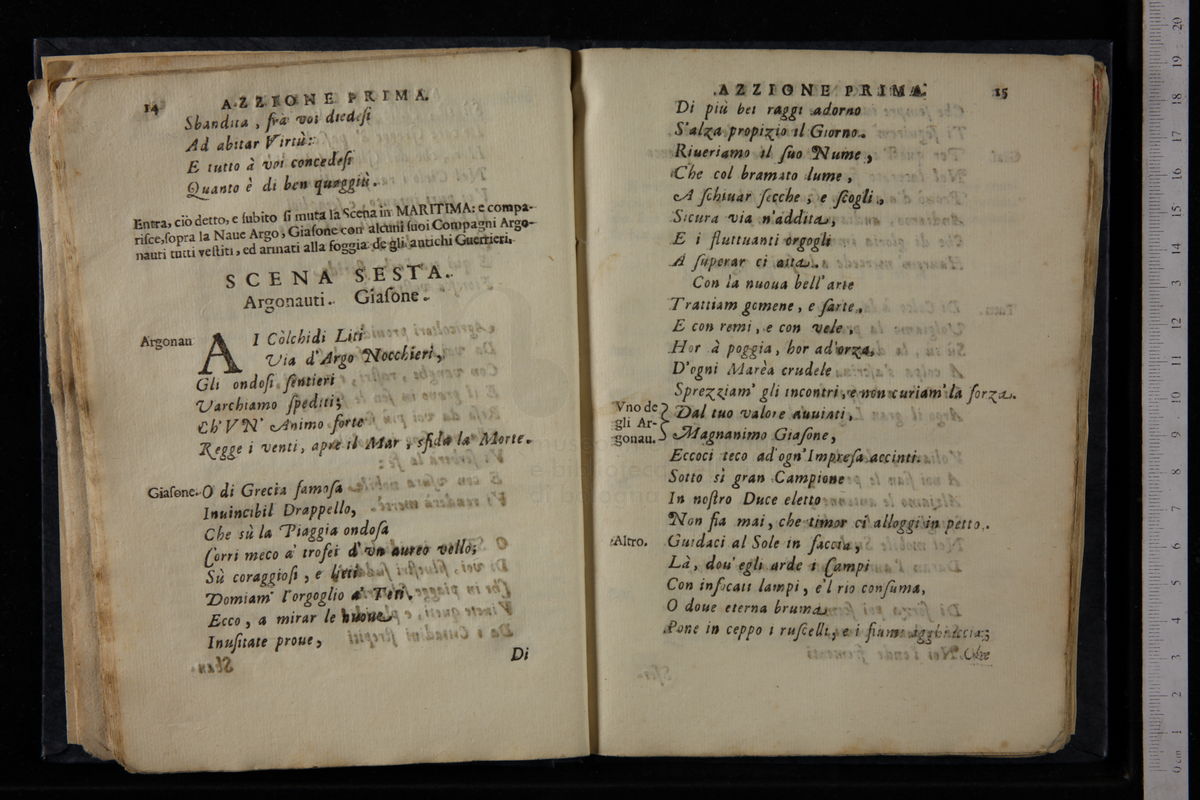 14 AZZIONE PRIMA.
Sbandita, frà voi diedesi
Ad abitar Virtù:
E tutto à voi concedesi
Quanto è di ben quaggiù.
Entra, ciò detto, e subito si muta la Scena in MARITIMA: e compa-
risce, sopra la Naue Argo, Giasone con alcuni suoi Compagni Argo-
nauti tutti vestiti, ed armati alla foggia de gli antichi Guerrieri.
SCENA SESTA.
Argonauti. Giasone.
Argonau
A I Còlchidi Liti
Via d'Argo Nocchieri,
Gli ondosi sentieri
Varchiamo spediti;
Ch'VN' Animo forte
Regge i venti, apre il Mar, sfida la Morte.
Giasone. O di Grecia famosa
Inuincibil Drappello,
Che sù la Piaggia ondosa
Corri meco a' trofei d'vn aureo vello;
Sù coraggiosi, e lieti
Domiam' l'orgoglio a' Teti.
Ecco, a mirar le nuoue
Inusitate proue,
Di
AZZIONE PRIMA. 15
Di più bei raggi adorno
S'alza propizio il Giorno.
Riueriamo il suo Nume,
Che col bramato lume,
A schiuar secche, e scogli,
Sicura via n'addita,
E i fluttuanti orgogli
A superar ci aita.
Con la nuoua bell'arte
Trattiam gomene, e sarte,
E con remi, e con vele,
Hor à poggia, hor ad'orza,
D'ogni Marèa crudele
Sprezziam' gli incontri, e non curiam' la forza.
Vno de gli Argonau. Dal tuo valore auuiati,
Magnanimo Giasone,
Eccoci teco ad ogn'Impresa accinti.
Sotto sì gran Campione
In nostro Duce eletto
Non fia mai, che timor ci alloggi in petto.
Altro. Guidaci al Sole in faccia,
Là, dou'egli arde i Campi
Con infocati lampi, e'l rio consuma,
O doue eterna bruma
Pone in ceppo i ruscelli, e i fiumi agghiaccia;
Oltre